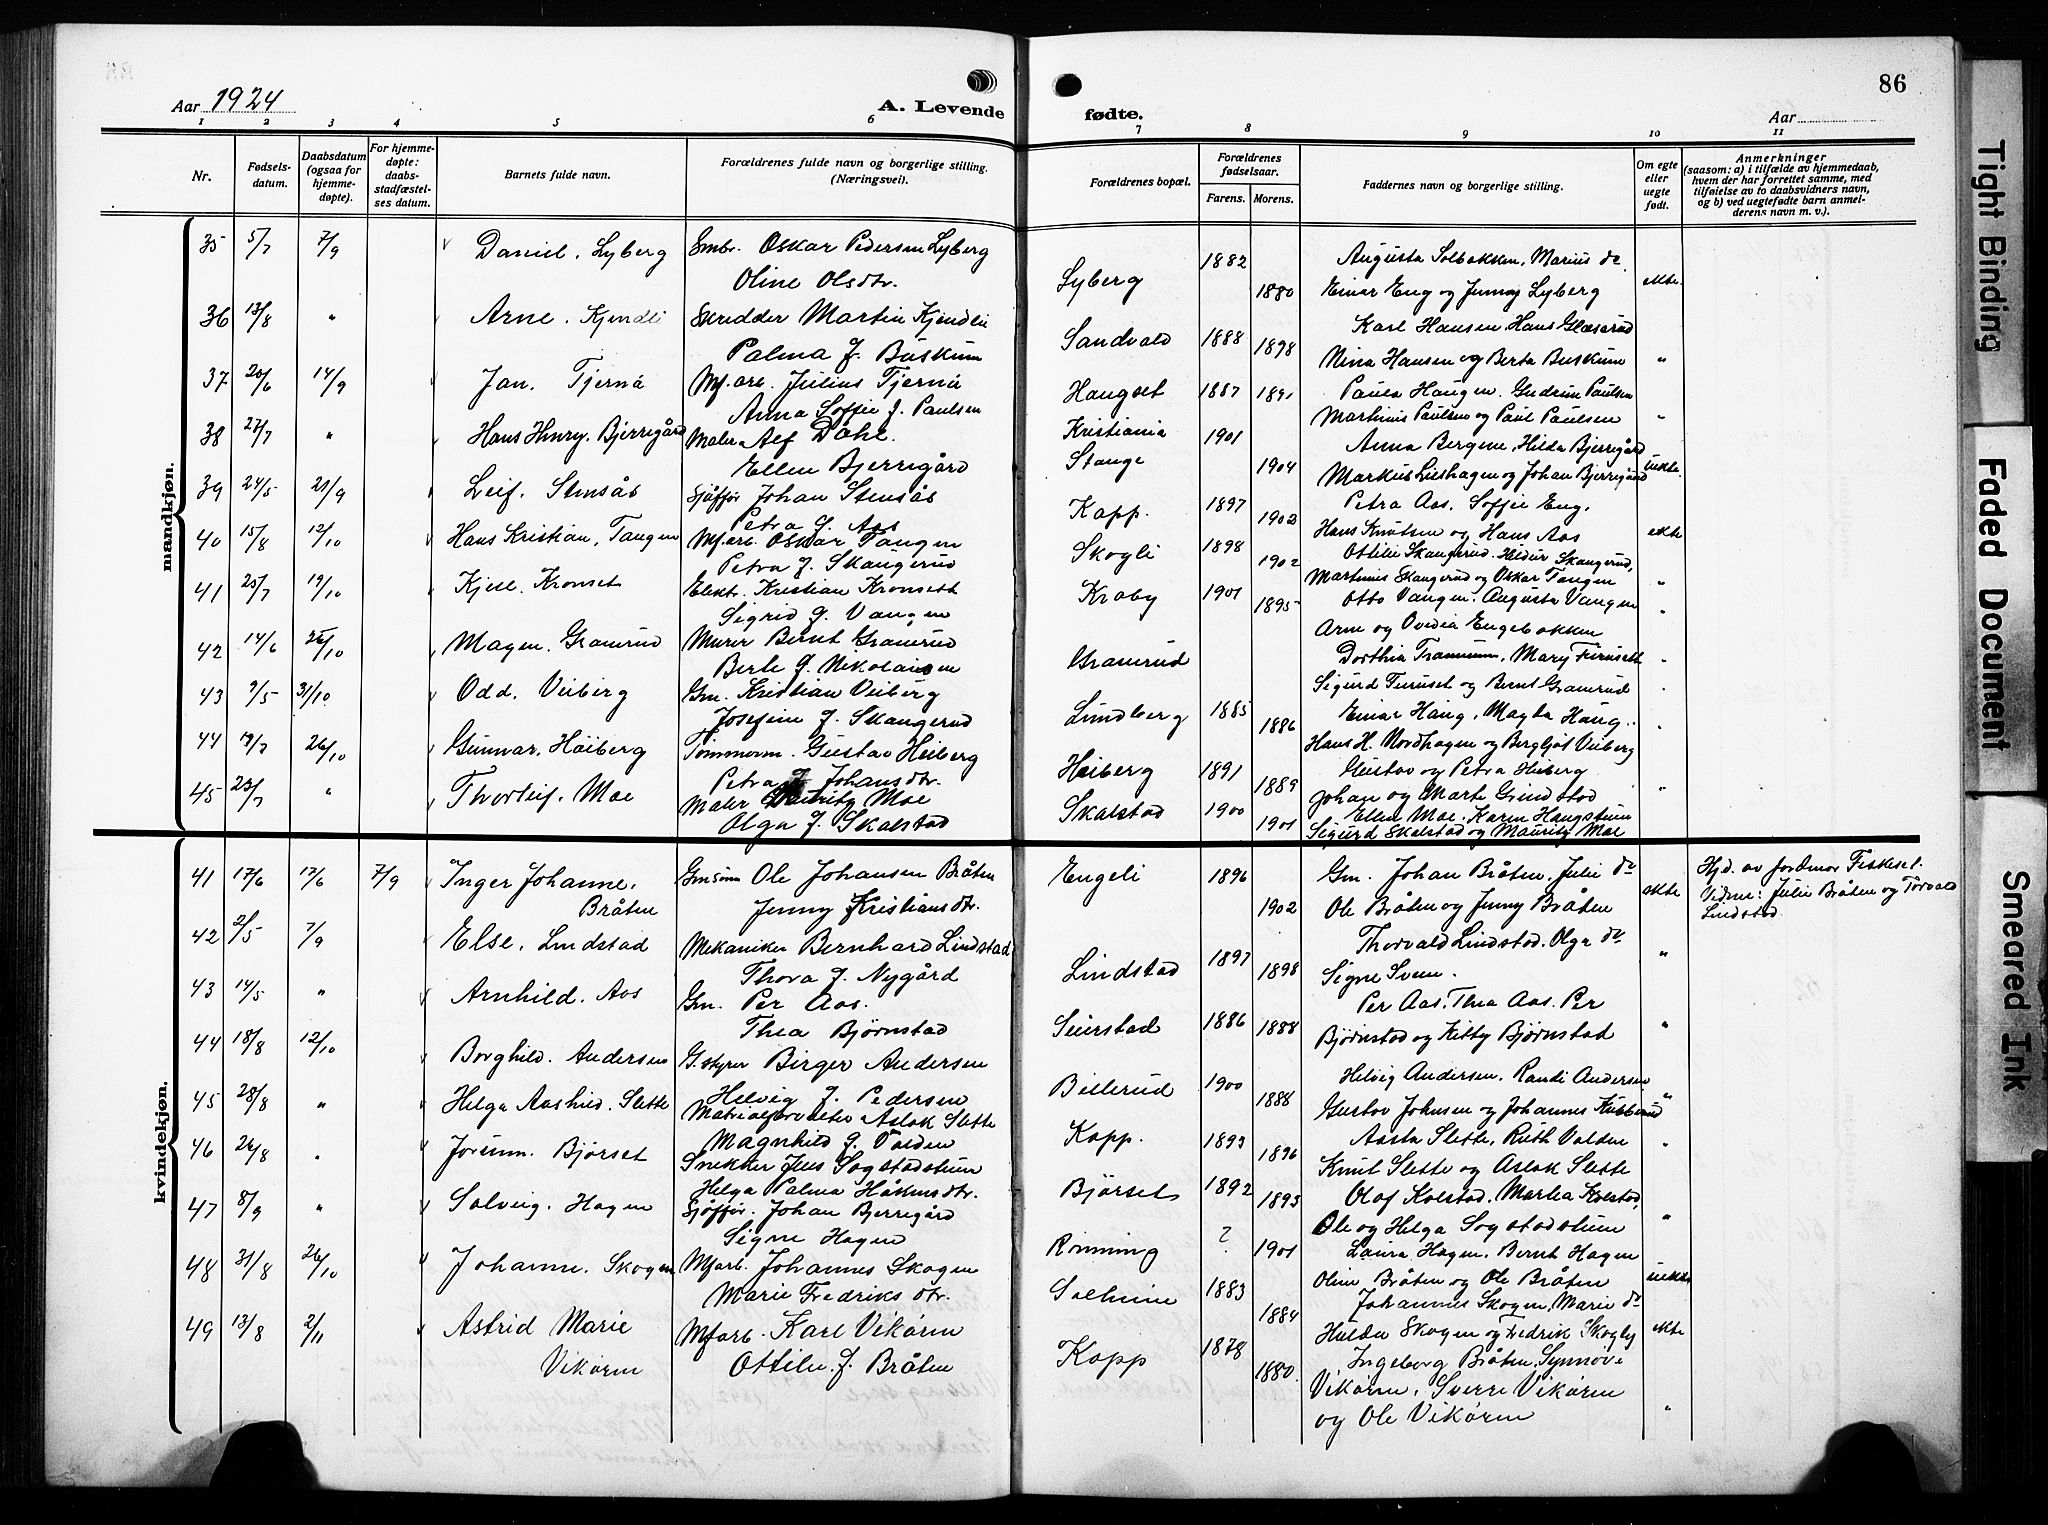 86
Aar 1924
A. Levende
fødte.
Aar
1 2 3 4 5 6 7 8 9 10 11
Nr.
Fødsels-
datum.
Daabsdatum
(ogsaa for
hjemme-
døpte).
For hjemme-
døpte:
daabs-
stadfæstel-
ses datum.
Barnets fulde navn.
Forældrenes fulde navn og borgerlige stilling.
(Næringsvei).
Forældrenes bopæl.
Forældrenes
fødselsaar.
Farens. Morens.
Faddernes navn og borgerlige stilling.
Om egte
eller
uegte
født.
Anmerkninger
(saasom: a) i tilfælde av hjemmedaab,
hvem der har forrettet samme, med
tilføielse av to daabsvidners navn,
og b) ved uegtefødte barn anmel-
derens navn m. v.).
mandkjøn.
35 5/7 7/9 Daniel. Lyberg Smbr. Oskar Pedersen Lyberg
Oline Olsdtr.
Lyberg 1882 1880
Augusta Solbakken, Marius do.
Einar Eng og Jenny Lyberg ekte.
36 13/8 " Arne. Kjendli Skredder Martin Kjendlie
Palma f. Buskum
Sandvold 1888 1898
Karl Hansen, Hans Glæserud
Nina Hansen og Berta Buskum "
37 20/6 14/9 Jan. Tjernå Mf.arb. Julius Tjernå
Anna Soffie f. Paulsen
Haugset 1887 1891
Paula Haugen. Gudrun Paulsen
Martinus Paulsen og Paul Paulsen "
38 27/7 " Hans Henry. Bjerregård Maler Alf Dahl.
Ellen Bjerregård
Kristiania 1901
Stange 1904
Anna Bergene, Hilda Bjerregård
Markus Lieshagen og Johan Bjerregård uekte.
39 24/5 21/9 Leif. Stensås Sjåffør Johan Stensås
Petra f. Aas
Kapp. 1897 1902
Petra Aas. Soffie Eng.
Hans Knutsen og Hans Aas ekte
40 15/8 12/10 Hans Kristian, Tangen Mf.arb. Oskar Tangen
Petra f. Skangerud
Skogli 1898 1902
Ottilie Skangerud. Heldur Skangerud,
Martinus Skangerud og Oskar Tangen "
41 20/7 19/10 Kjell. Kronset Elektr. Kristian Kronsett
Sigrid f. Vangen
Kraby 1901 1895
Otto Vangen. Augusta Vangen
Arne og Ovedia Engebakken "
42 14/6 26/10 Magen. Gramrud Murer Bernt Gramrud
Berte f. Nikolaisen
Gramrud
Dorthia Trannum, Mary Furuseth
Sigurd Furuset og Bernt Gramrud "
43 9/5 31/10 Odd. Veiberg Gm. Kristian Veiberg
Josefine f. Skangerud
Lundberg 1885 1886
Einar Haug, Magda Haug.
Hans H. Nordhagen og Bergljot Veiberg "
44 19/7 26/10 Gunnar. Heiberg Tømmerm. Gustav Heiberg
Petra f. Johansdtr.
Heiberg 1891 1889
Gustav og Petra Heiberg
Johan og Marte Grindstad "
45 23/7 " Thorleif. Moe Maler Mauritz Moe
Olga f. Skalstad
Skalstad 1900 1901
Ellen Moe. Karen Haugstuen
Sigurd Skalstad og Mauritz Moe
kvindekjøn.
41 17/6 17/6 7/9 Inger Johanne.
Bråten
Gmsønn Ole Johansen Bråten
Jenny Kristiansdtr.
Engeli 1896 1902
Gm. Johan Bråten. Julie do
Ole Bråten og Jenny Bråten ekte
Hjd. av Jordmor Fiskeset.
Vidner: Julie Bråten og Torvald
Lindstad
42 2/5 7/9 Else. Lindstad Mekaniker Bernhard Lindstad
Thora f. Nygård
Lindstad 1897 1898
Thorvald Lindstad. Olga do.
Signe Sveen. "
43 14/5 " Arnhild. Aas Gm. Per Aas.
Thea Bjørnstad
Seierstad 1886 1888
Per Aas, Thea Aas. Per
Bjørnstad og Kitty Bjørnstad "
44 18/8 12/10 Borghild. Andersen G.styrer Birger Andersen
Helvig f. Pedersen
Billerud 1900 1888
Helvig Andersen. Randi Andersen
Gustav Johnsen og Johannes Kubberud "
45 28/8 " Helga Aashild. Slette Matrialforvalter Aslak Slette
Magnhild f. Valden
Kapp. 1893 1896
Aasta Slette, Ruth Valden
Knut Slette og Aslak Slette "
46 26/8 " Jorunn. Bjørset Snekker Jens Sogstadstuen
Helga Palma Håkensdtr.
Bjørset 1892 1893
Olaf Kolstad. Martea Kolstad,
Ole og Helga Sogstadstuen "
47 8/9 " Solveig. Hagen Sjåffør. Johan Bjerregård
Signe Hagen
Rønning ? 1901
Laura Hagen. Bernt Hagen
Oline Bråten og Ole Bråten uekte
48 31/8 26/10 Johanne. Skogen Mfarb. Johannes Skogen
Marie Fredriksdtr.
Solheim 1883 1884
Johannes Skogen, Marie do
Hulda Skogen og Fredrik Skogly ekte
49 13/8 2/11 Astrid Marie
Vikøren
Mfarb. Karl Vikøren
Ottilie f. Bråten
Kapp 1878 1880.
Ingeborg Bråten. Synnøve
Vikøren. Sverre Vikøren
og Ole Vikøren "
Tight Binding
Faded Document
Smeared Ink